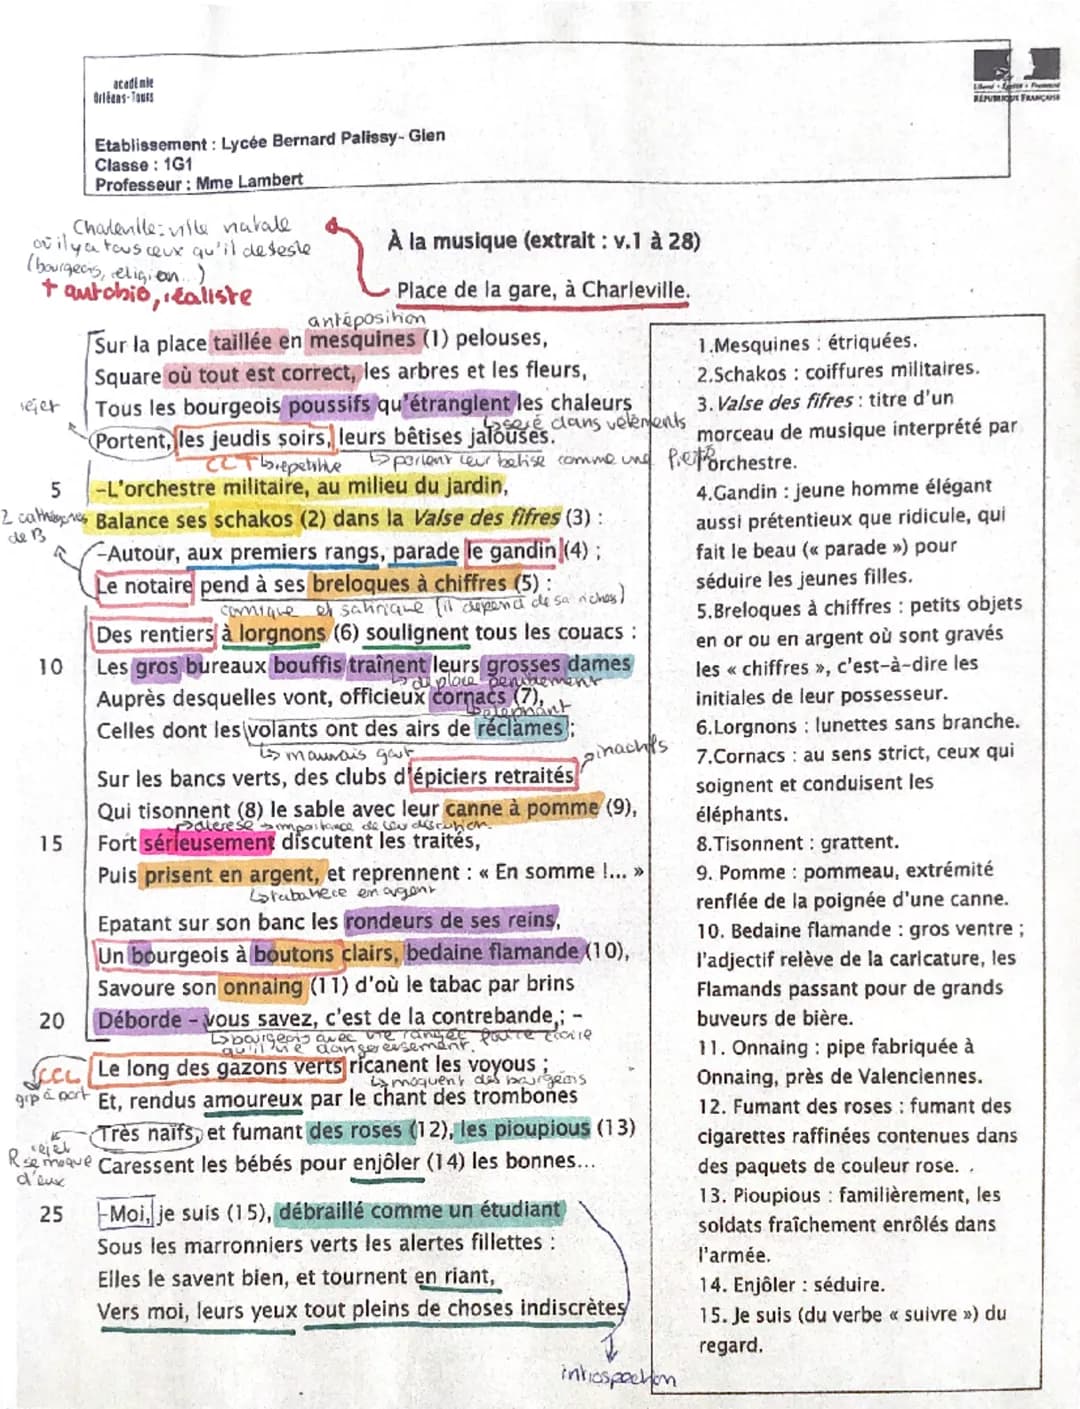 académie
Orléans-Tours
Liberté • Égalité • Fraternité
RÉPUBLIQUE FRANÇAISE
Etablissement : Lycée Bernard Palissy- Gien
Classe : 1G1
Professeur : Mme Lambert
Charleville: ville natale
où il y a tous ceux qu'il deteste
(bourgeois, religion...)
+ autobio, réaliste
À la musique (extrait : v.1 à 28)
Place de la gare, à Charleville.
antéposition
Sur la place taillée en mesquines (1) pelouses,
Square où tout est correct, les arbres et les fleurs,
rejet
Tous les bourgeois poussifs qu'étranglent les chaleurs
↳ serré dans vêtements
Portent, les jeudis soirs, leurs bêtises jalouses.
CCT ↳ répétitive
↳ portent leur betise comme une
5 -L'orchestre militaire, au milieu du jardin,
2 cathégories de B
Balance ses schakos (2) dans la Valse des fifres (3) :
-Autour, aux premiers rangs, parade le gandin (4) ;
Le notaire pend à ses breloques à chiffres (5) :
comique et satirique (il depend de sa riches)
Des rentiers à lorgnons (6) soulignent tous les couacs :
10 Les gros bureaux bouffis traînent leurs grosses dames
↳ déplace péniblement
Auprès desquelles vont, officieux cornacs (7),
↳ elephant
Celles dont les volants ont des airs de réclames ;
↳ mauvais gout
inactifs
Sur les bancs verts, des clubs d'épiciers retraités
Qui tisonnent (8) le sable avec leur canne à pomme (9),
↳ diérèse → importance de leu discution
15 Fort sérieusement discutent les traités,
Puis prisent en argent, et reprennent : « En somme !... »
↳ tabatiere en argent
Epatant sur son banc les rondeurs de ses reins,
Un bourgeois à boutons clairs, bedaine flamande (10),
Savoure son onnaing (11) d'où le tabac par brins
20 Déborde – vous savez, c'est de la contrebande,; –
↳ bourgeois avec une
dangereusement.
CCL
grp à part
Le long des gazons verts ricanent les voyous ;
↳ moquent des bourgeois
Et, rendus amoureux par le chant des trombones
rejet
R se moque d'eux
Très naïfs, et fumant des roses (12), les pioupious (13)
Caressent les bébés pour enjôler (14) les bonnes...
25 -Moi, je suis (15), débraillé comme un étudiant
Sous les marronniers verts les alertes fillettes :
Elles le savent bien, et tournent en riant,
Vers moi, leurs yeux tout pleins de choses indiscrètes
introspection
1.Mesquines : étriquées.
2.Schakos : coiffures militaires.
3. Valse des fifres : titre d'un
morceau de musique interprété par
l'orchestre.
4.Gandin : jeune homme élégant
aussi prétentieux que ridicule, qui
fait le beau (« parade ») pour
séduire les jeunes filles.
5.Breloques à chiffres : petits objets
en or ou en argent où sont gravés
les « chiffres », c'est-à-dire les
initiales de leur possesseur.
6.Lorgnons : lunettes sans branche.
7.Cornacs : au sens strict, ceux qui
soignent et conduisent les
éléphants.
8.Tisonnent : grattent.
9. Pomme : pommeau, extrémité
renflée de la poignée d'une canne.
10. Bedaine flamande : gros ventre ;
l'adjectif relève de la caricature, les
Flamands passant pour de grands
buveurs de bière.
11. Onnaing : pipe fabriquée à
Onnaing, près de Valenciennes.
12. Fumant des roses : fumant des
cigarettes raffinées contenues dans
des paquets de couleur rose. .
13. Pioupious : familièrement, les
soldats fraîchement enrôlés dans
l'armée.
14. Enjôler : séduire.
15. Je suis (du verbe « suivre ») du
regard.